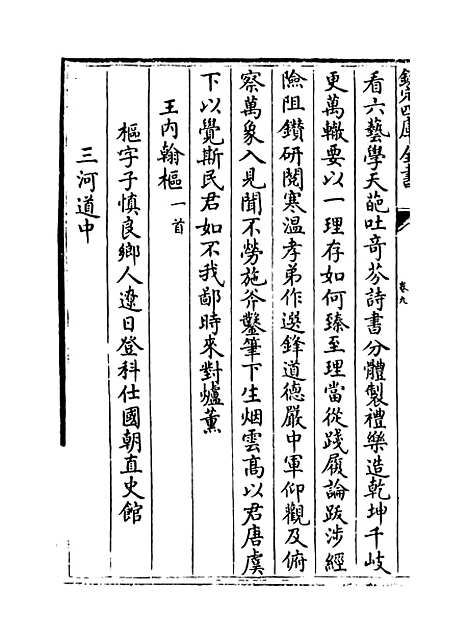 欽定四庫全書
卷九
看六藝學天葩吐奇芬詩書分體製禮樂造乾坤千岐
更萬轍要以一理存如何臻至理當從踐履論跋涉經
險阻鑽研閱寒温孝弟作選鋒道德嚴中軍仰觀及俯
察萬象入見聞不勞施斧鑿筆下生烟雲髙以君唐虞
下以覺斯民君如不我鄙時來對爐薫
王内翰樞一首
樞字子慎良鄉人遼日登科仕國朝直史館
三河道中